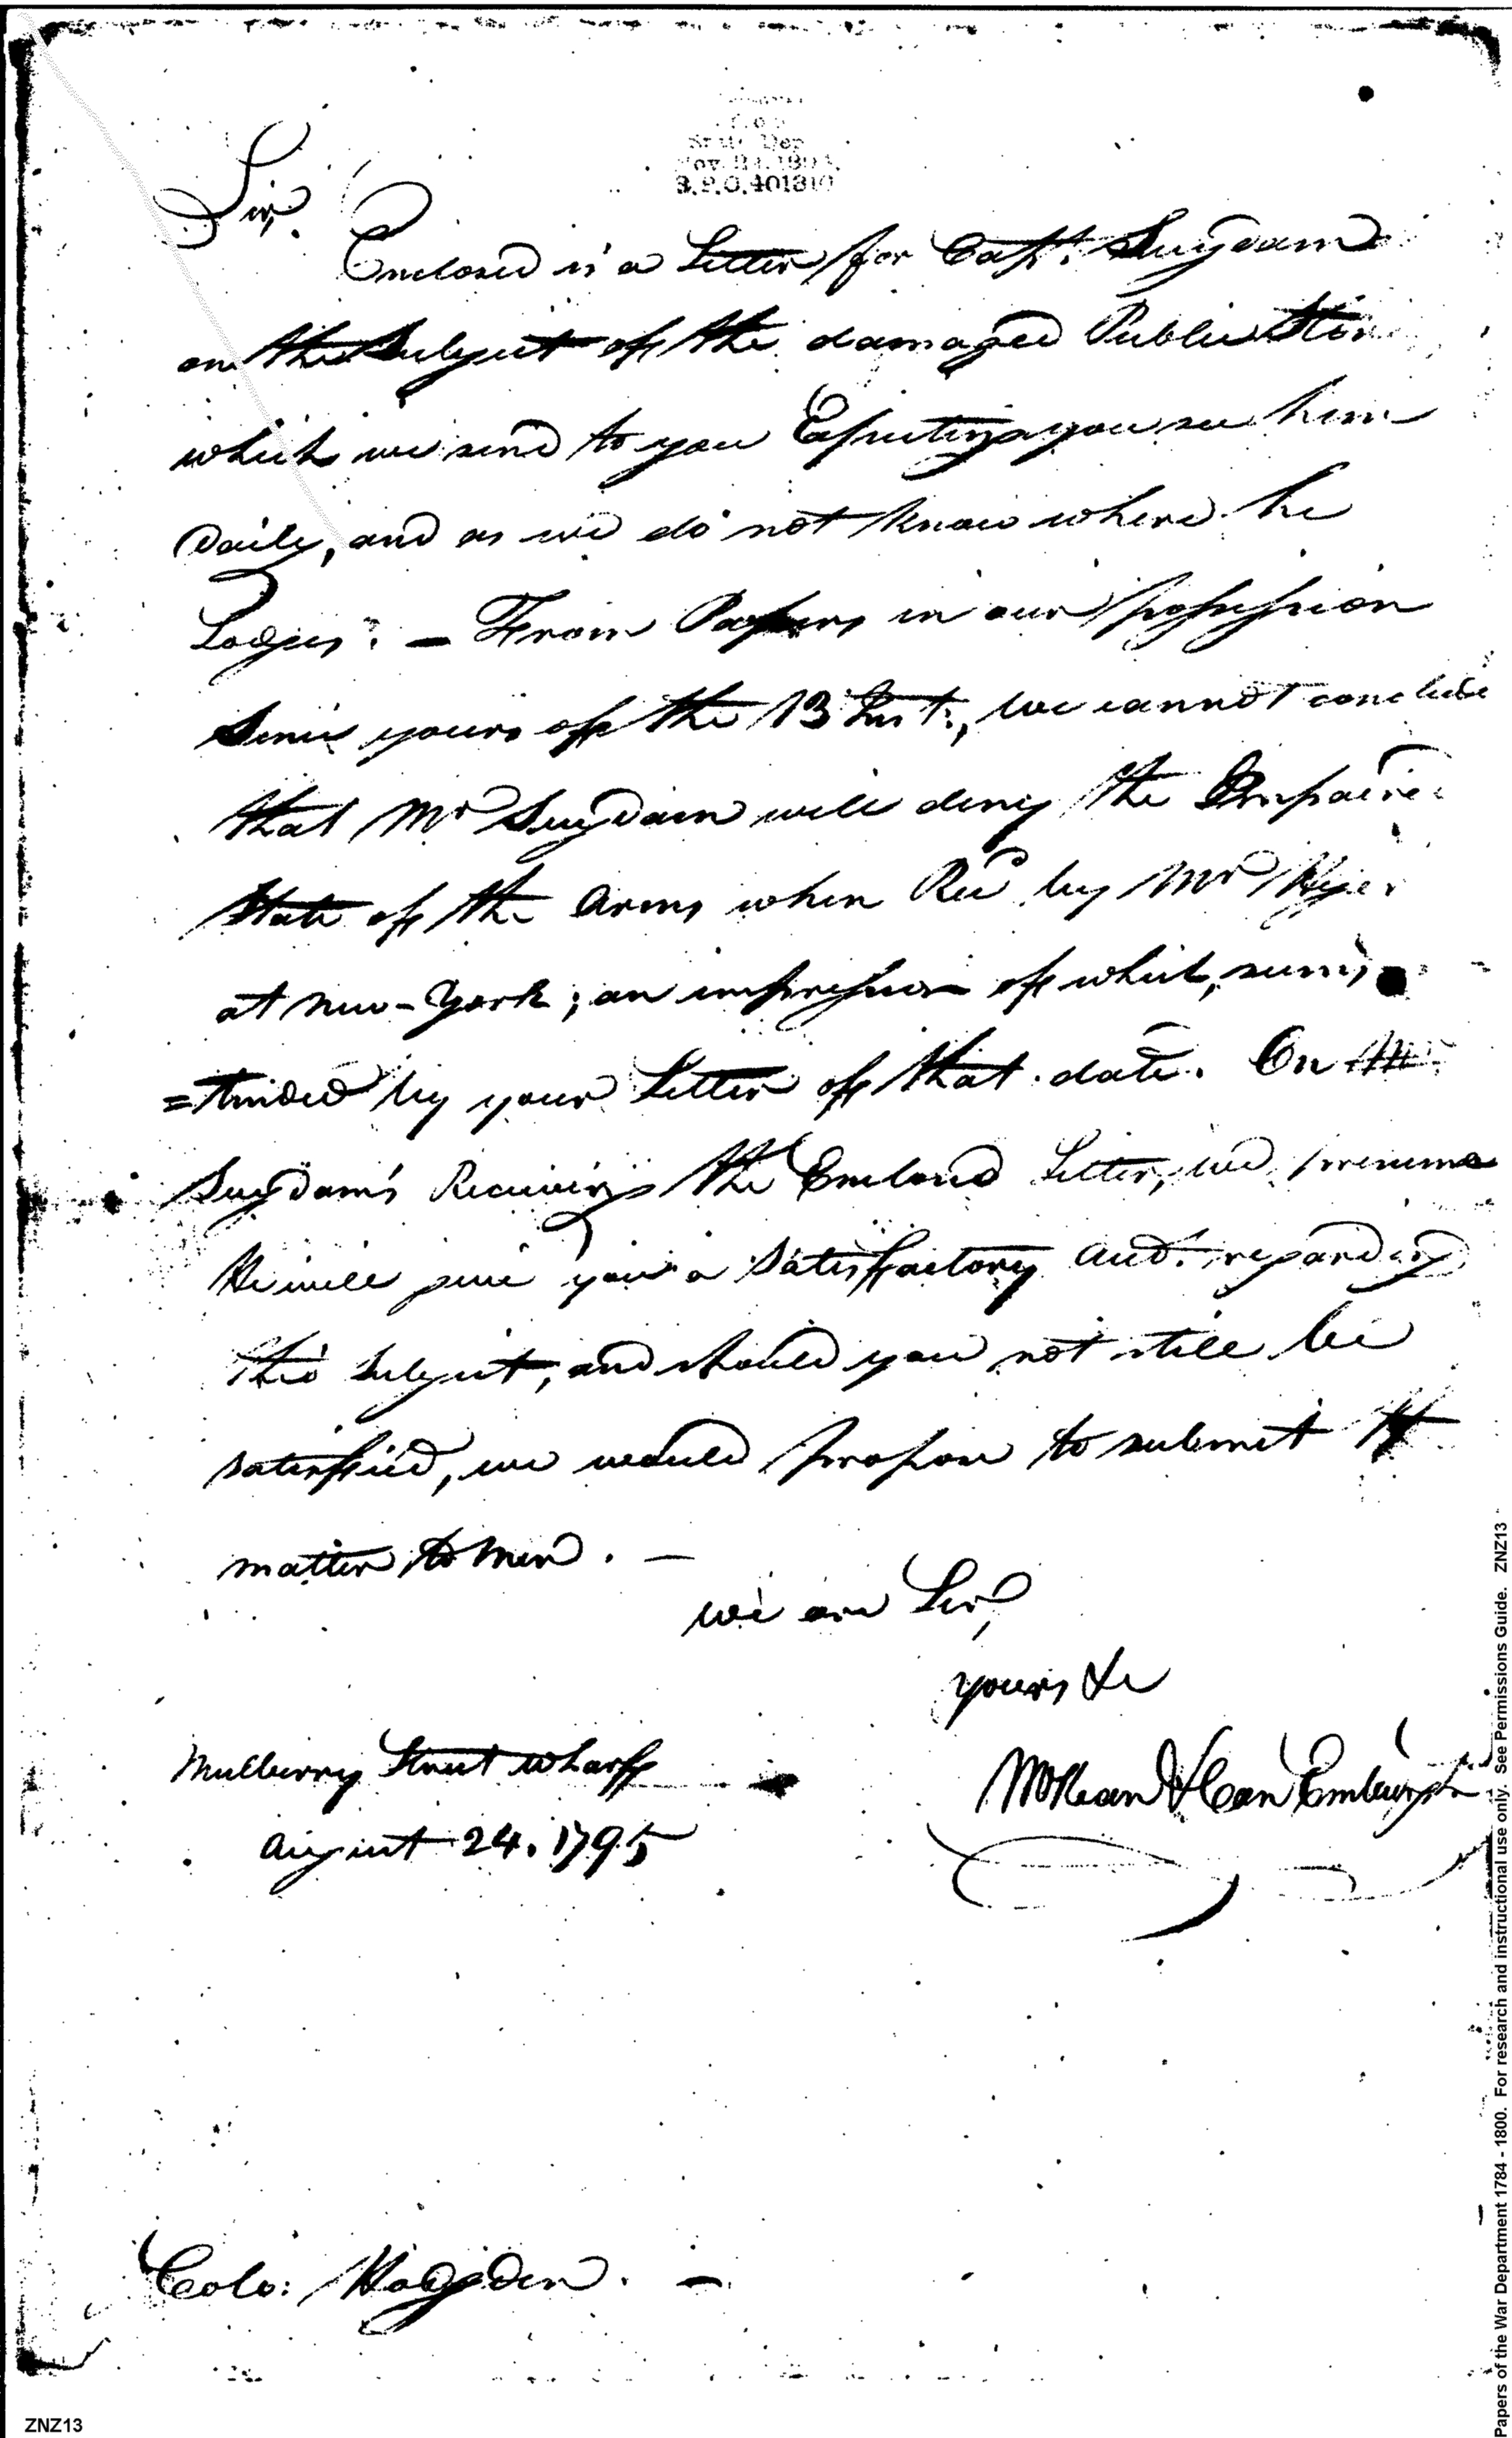 State Dep
Nov. 21. 189
S.P.O. 401310
Sir,
Enclosed is a Letter for Capt. Suydam
on the Subject of the damaged Public Stor
which we send to you Expecting you see him
Daily, and as we do not know where he
Lodges. — From Papers in our possession
Since yours of the 13 Inst., we cannot conclude
that Mr Suydam will deny the Impaire
State of the Arms when Recd by Mr Hyer
at New-York; an impression of which, seems
=tended by your Letter of that date. On Mr
Suydam's Receiving the Enclosed Letter, we presume
He will give you a Satisfactory regarding
this Subject, and should you not still be
satisfied, we would propose to submit
matter to Men. —
We are Sir,
yours &c
McKean & Van Emburgh
Mulberry Street Wharff
August 24. 1795
Colo: Hodgden. —
ZNZ13
Papers of the War Department 1784 - 1800. For research and instructional use only. See Permissions Guide. ZNZ13